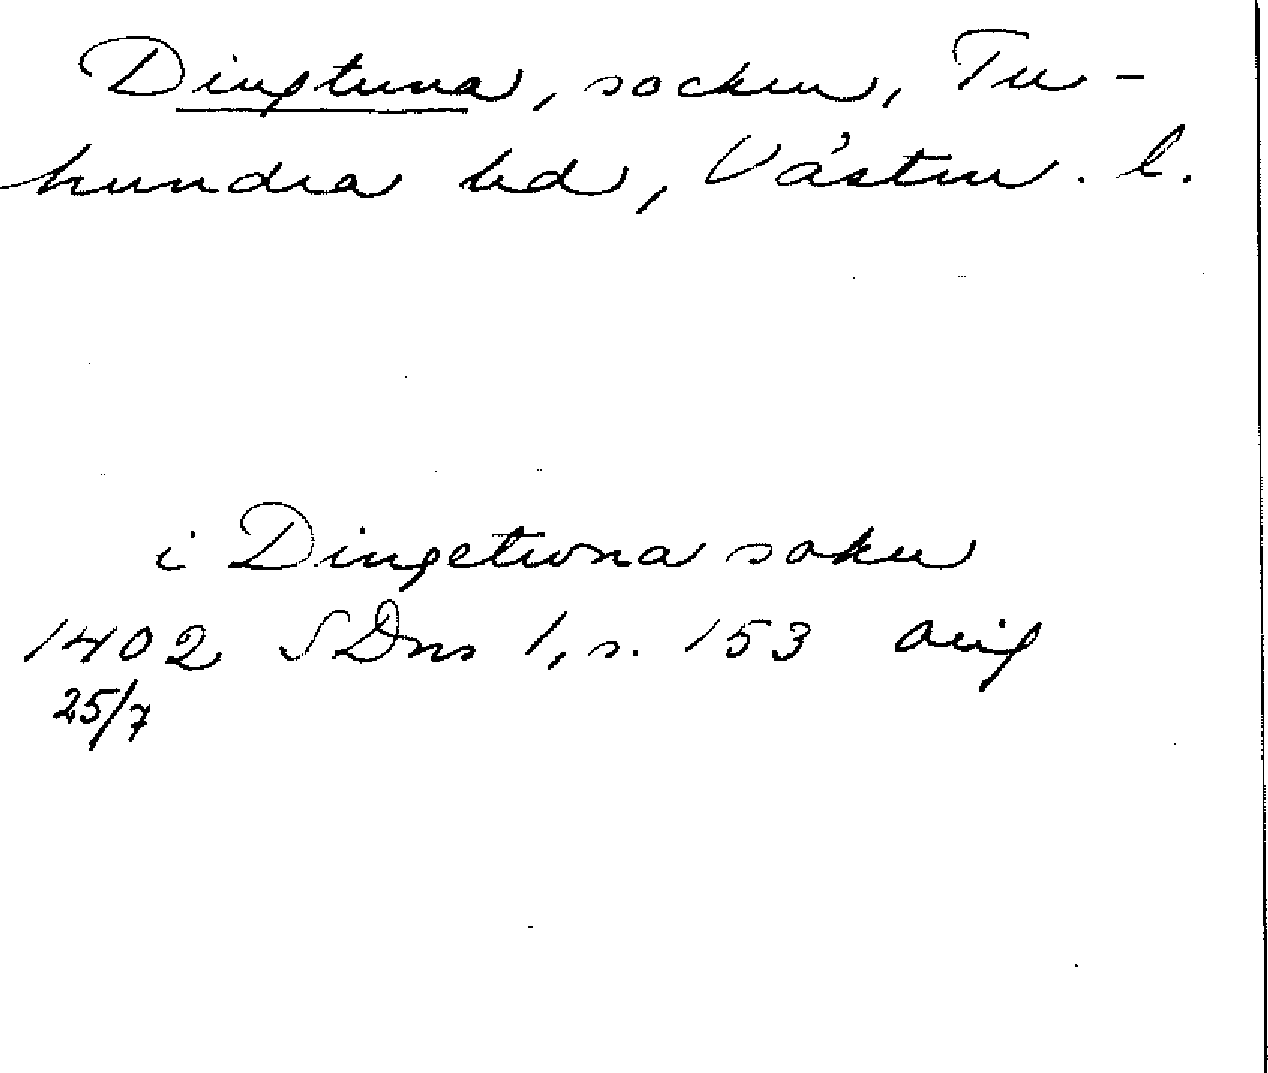 Dingtuna, socken, Tu-
hundra hd, Västm. l.
i Dingetwna sokn
1402 SDns 1, s. 153 orig
25/7